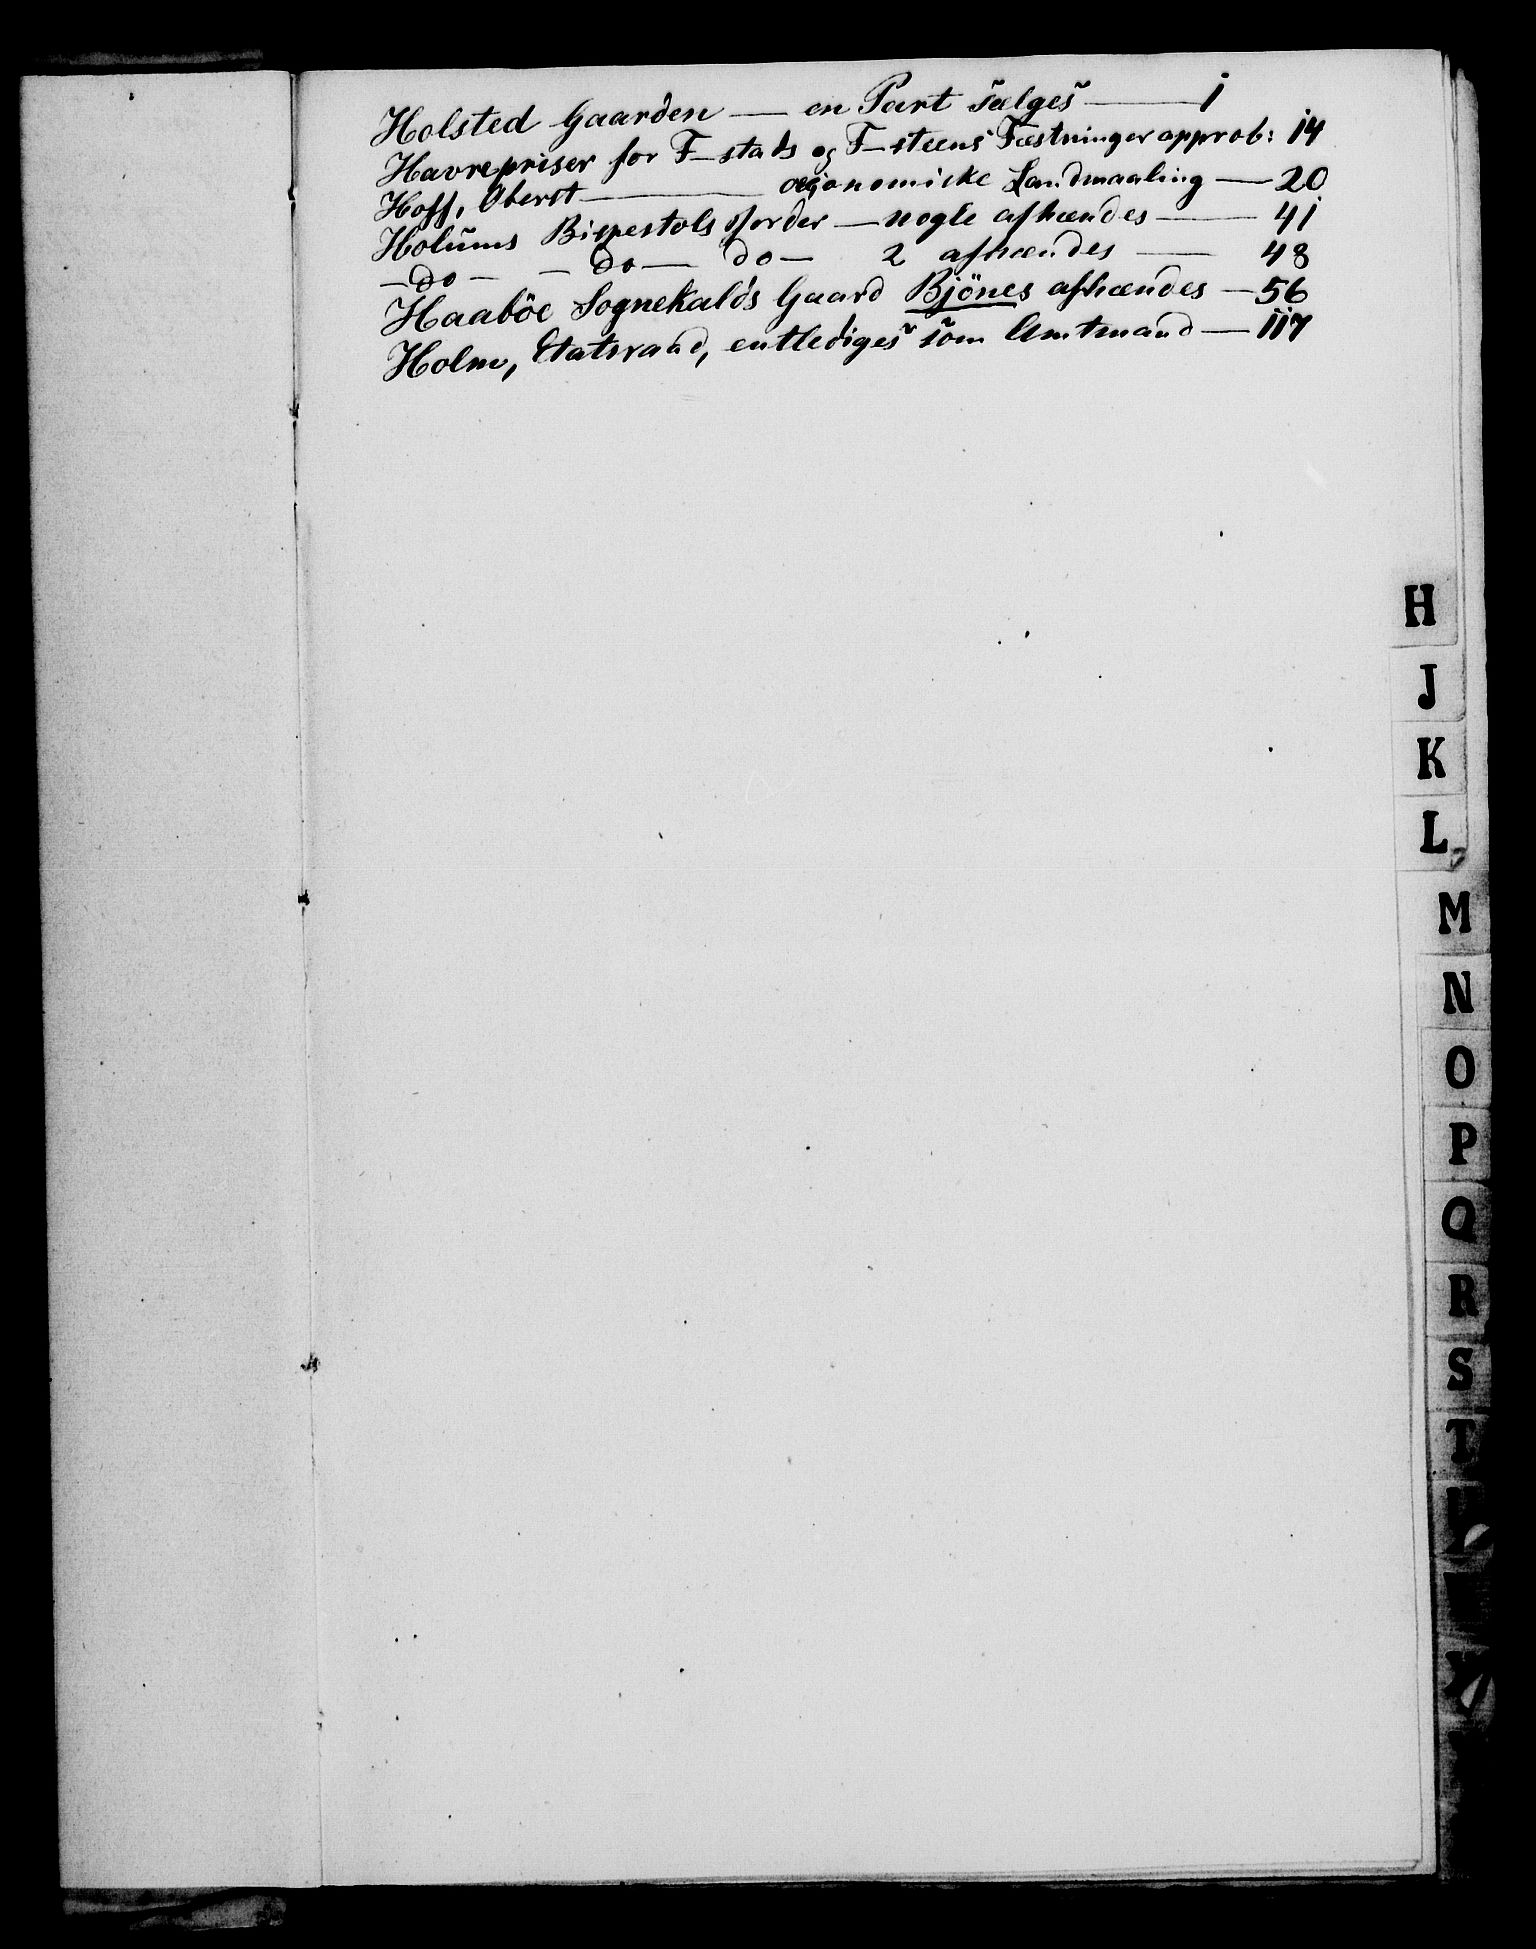 Holsted Gaarden — en Part sælges — 1
Havrepriser for F-stads og F-steens Fæstninger approb: 14
Hoff, Oberst — oeconomiske Landmaaling — 20
Holums Bispestols Jorder — nogle afhændes — 41
— do — — do — do — 2 afhændes — 48
Haaböe Sognekalds Gaard Bjönes afhændes — 56
Holm, Etatsraad, entlediges som Amtmand — 117
H
J
K
L
M
N
O
P
Q
R
S
T